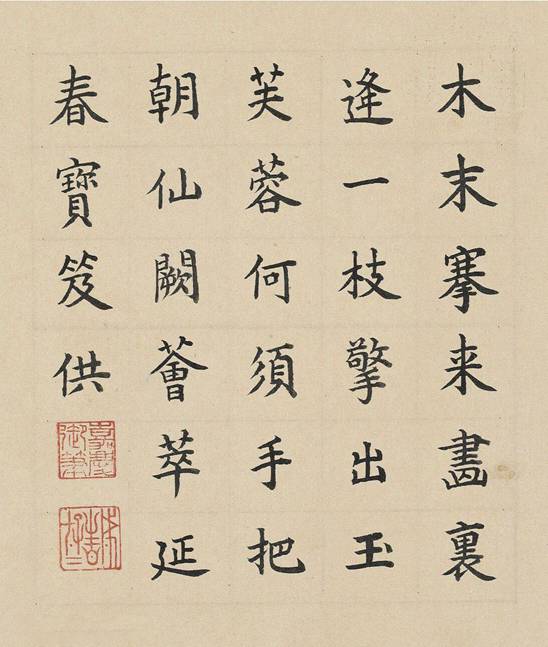 木末搴来畵裏
逢一枝擎出玉
芙蓉何須手把
朝仙闕薈萃延
春寶笈供
嘉慶御筆